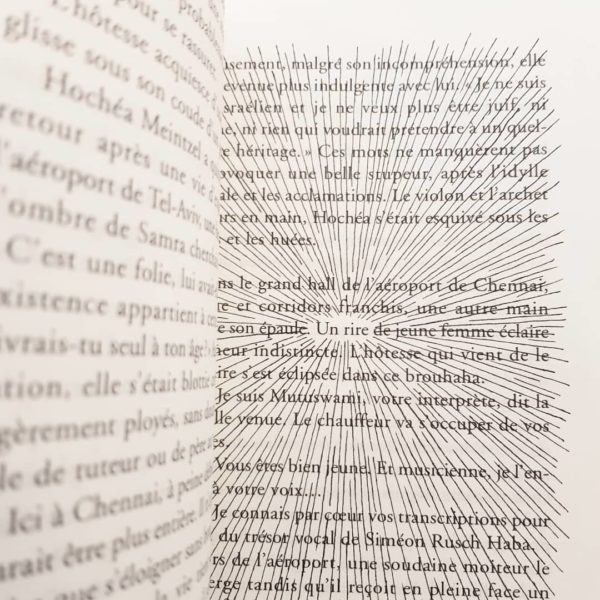 probable
pour se rassurer
L'hôtesse acquiesce
glisse sous son coude
Hochéa Meintzel a
retour après une vie d'
l'aéroport de Tel-Aviv, une
l'ombre de Samra cherche
C'est une folie, lui avait
existence appartient à
vrais-tu seul à ton âge
elle s'était blottie
ployés, sans
le de tuteur ou de père
Ici à Chennai, à peine
être plus entière. Il
que s'éloigner sans
la vie
malgré son incompréhension, elle
evenue plus indulgente avec lui. « Je ne suis
sraélien et je ne veux plus être juif, ni
e, ni rien qui voudrait prétendre à un quel-
e héritage. » Ces mots ne manquèrent pas
voquer une belle stupeur, après l'idylle
ale et les acclamations. Le violon et l'archet
rs en main, Hochéa s'était esquivé sous les
et les huées.
ns le grand hall de l'aéroport de Chennai,
te et corridors franchis, une autre main
e son épaule. Un rire de jeune femme éclaire
eur indistincte. L'hôtesse qui vient de le
ire s'est éclipsée dans ce brouhaha.
Je suis Mutuswami, votre interprète, dit la
lle venue. Le chauffeur va s'occuper de vos
es.
Vous êtes bien jeune. Et musicienne, je l'en-
à votre voix...
Je connais par cœur vos transcriptions pour
du trésor vocal de Siméon Rusch Haba.
rs de l'aéroport, une soudaine moiteur le
erge tandis qu'il reçoit en pleine face un